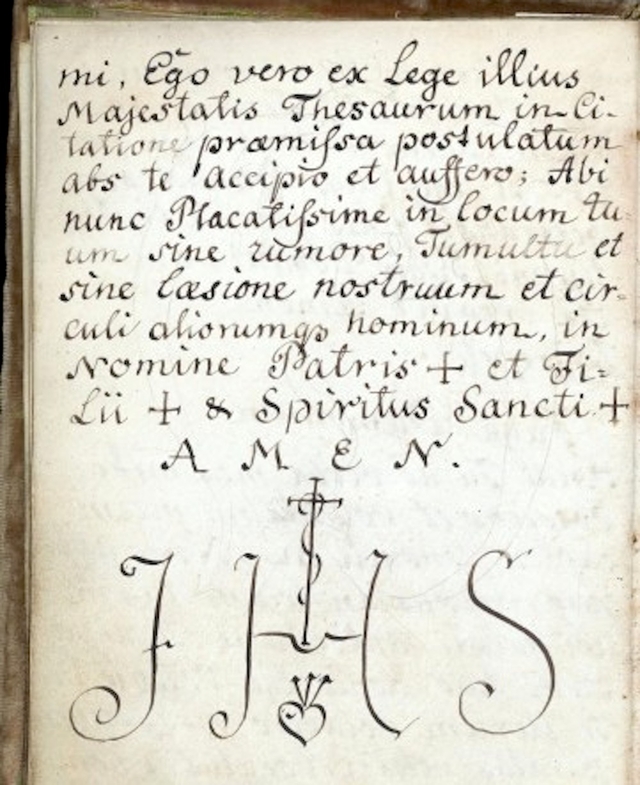 mi, Ego vero ex Lege illius
Majestatis Thesaurum in Ci-
tatione præmiſsa postulatum
abs te accipio et auffero; Abi
nunc Placatiſsime in locum tu-
um sine rumore, Tumultu et
sine læsione nostruum et cir-
culi aliorumqꝫ hominum, in
Nomine Patris + et Fi=
Lii + & Spiritus Sancti +
A M E N.
J H S